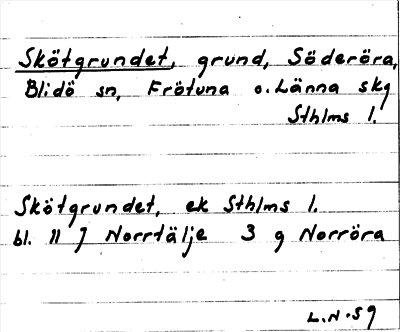 Skötgrundet, grund, Söderöra,
Blidö sn, Frötuna o. Länna skg
Sthlms l.
Skötgrundet, ek Sthlms l.
bl. 11 J Norrtälje 3 g Norröra
L.N.59